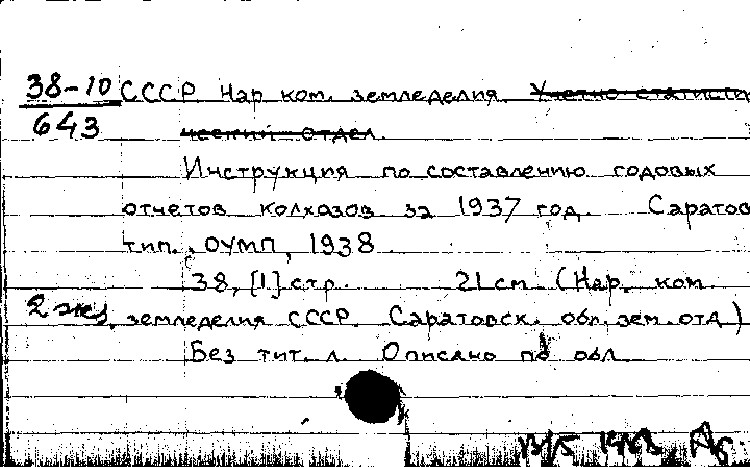 38-10 СССР Нар. ком. земледелия. Учетно-статисти
643 ческий отдел.
Инструкция по составлению годовых
отчетов колхозов за 1937 год. Саратов
тип. ОУМП, 1938
38, [1] стр. 21 см (Нар. ком.
2 экз. земледелия СССР. Саратовск. обл. зем. отд.)
Без тит. л. Описано по обл.